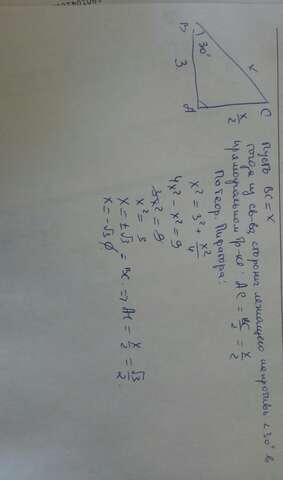 B
30°
3
x
A
x/2
C
Пусть BC = x
тогда из св-ва стороны лежащего напротив <30° в
прямоугольном тр-ке: AC = BC/2 = x/2
По теор. Пифагора:
x² = 3² + x²/4
4x² - x² = 9
3x² = 9
x² = 3
x = ±√3 = BC => AC = x/2 = √3/2.
x = -√3 ∅